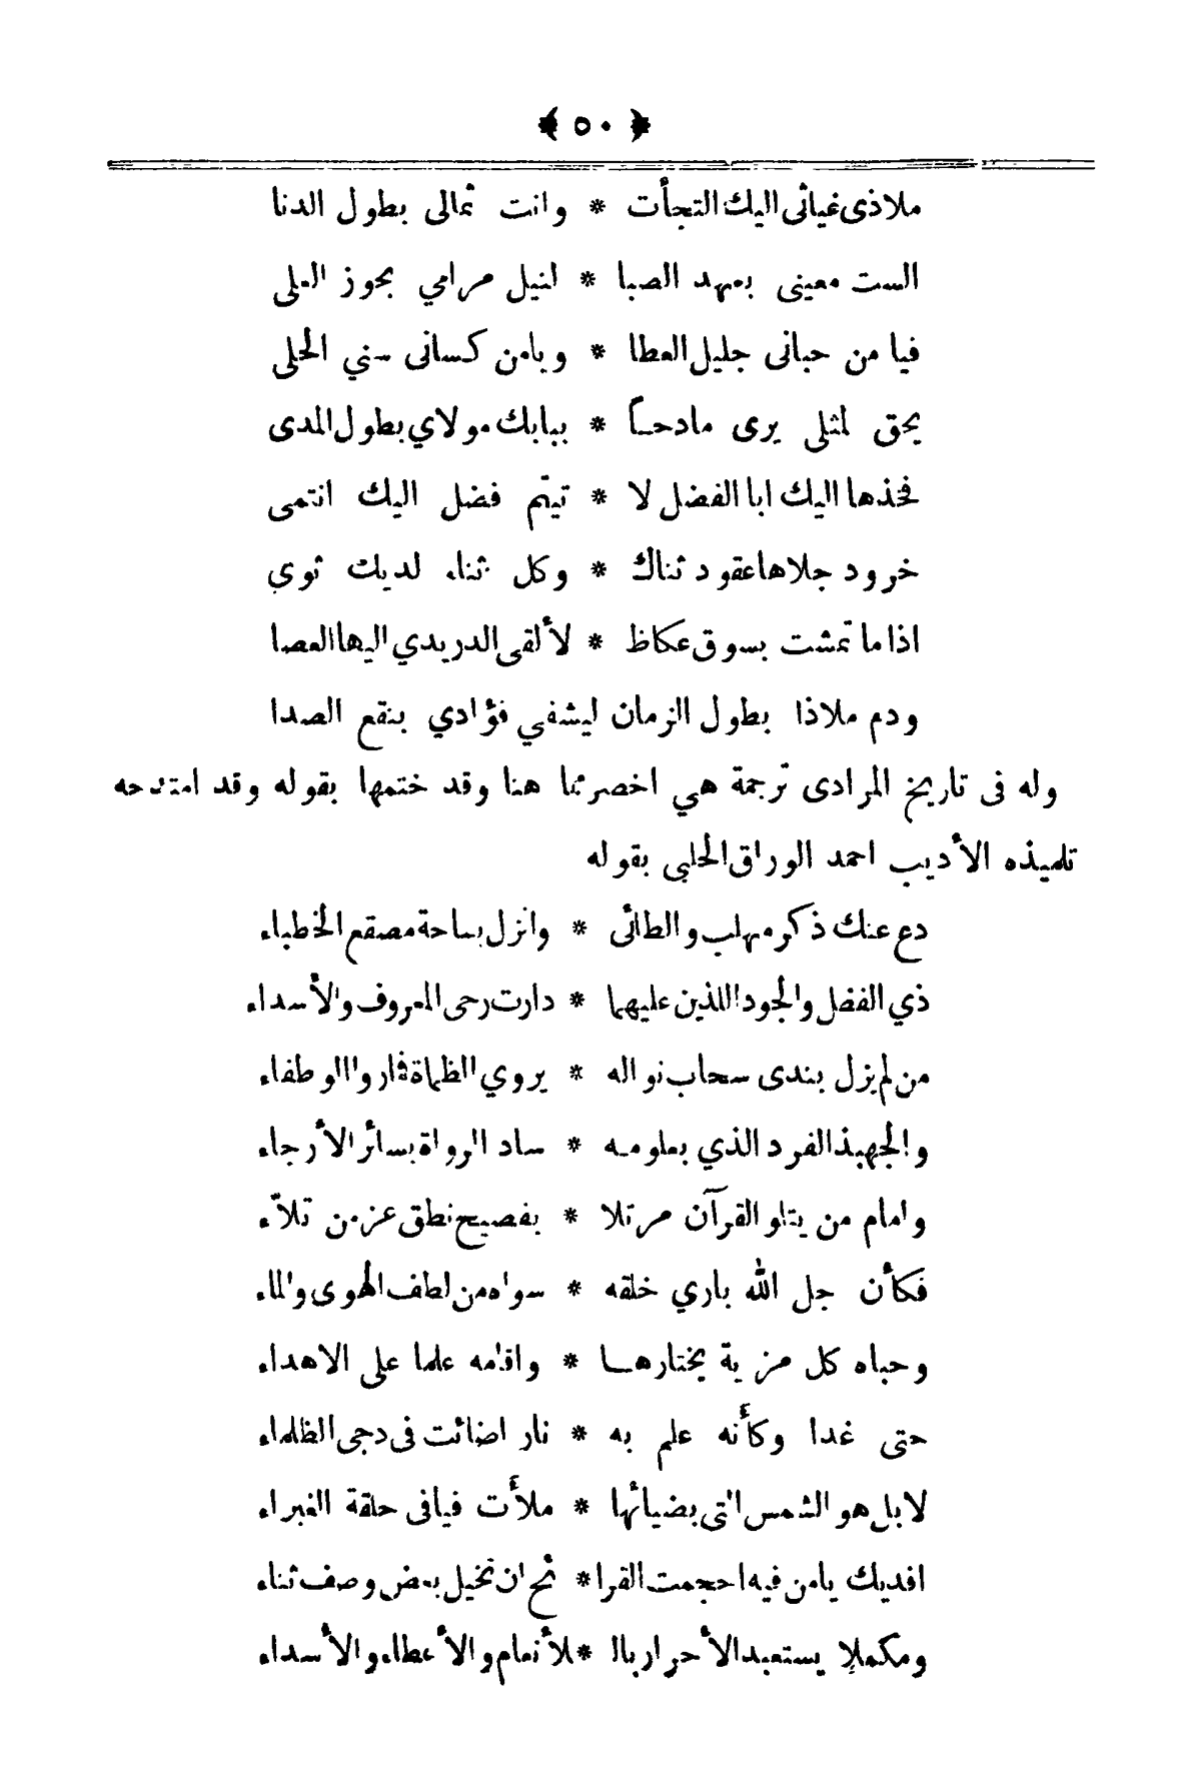 ﴿ ٥٠ ﴾
ملاذى غياثى اليك التجأت * وانت ثمالى بطول الدنا
الست معينى بعهد الصبا * لنيل مرامي بحوز العلى
فيا من حبانى جليل العطا * ويامن كسانى سني الحلى
يحق لمثلى يرى مادحاً * ببابك مولاي بطول المدى
فخذها اليك ابا الفضل لا * تيتم فضل اليك انتمى
خرود جلاها عقود ثناك * وكل ثناء لديك ثوي
اذا ما تمشت بسوق عكاظ * لألقى الدريدي اليها العصا
ودم ملاذا بطول الزمان ليشفي فؤادي بنقع الصدا
وله فى تاريخ المرادى ترجمة هي اخصر مما هنا وقد ختمها بقوله وقد امتدحه
تلميذه الأديب احمد الوراق الحلبى بقوله
دع عنك ذكر مهلب والطائى * وانزل بساحة مصقع الخطباء
ذي الفضل والجود اللذين عليهما * دارت رحى المعروف والأسداء
من لم يزل بندى سحاب نواله * يروي الظماة فما روا الوطفاء
والجهبذ الفرد الذي بعلومه * ساد الرواة بسائر الأرجاء
وامام من يتلو القرآن مرتلا * بفصيح نطق عز من تلاّء
فكأن جل الله باري خلقه * سواه من لطف الهوى والماء
وحباه كل مزية يختارها * واقامه علما على الاهداء
حتى غدا وكأنه علم به * نار اضائت فى دجى الظلماء
لابل هو الشمس التى بضيائها * ملأت فيافى حلقة الغبراء
افديك يامن فيه احجمت القرا * ئح ان تخيل بعض وصف ثناء
ومكملا يستعبد الأحرار بالا * لأنعام والأعطاء والأسداء